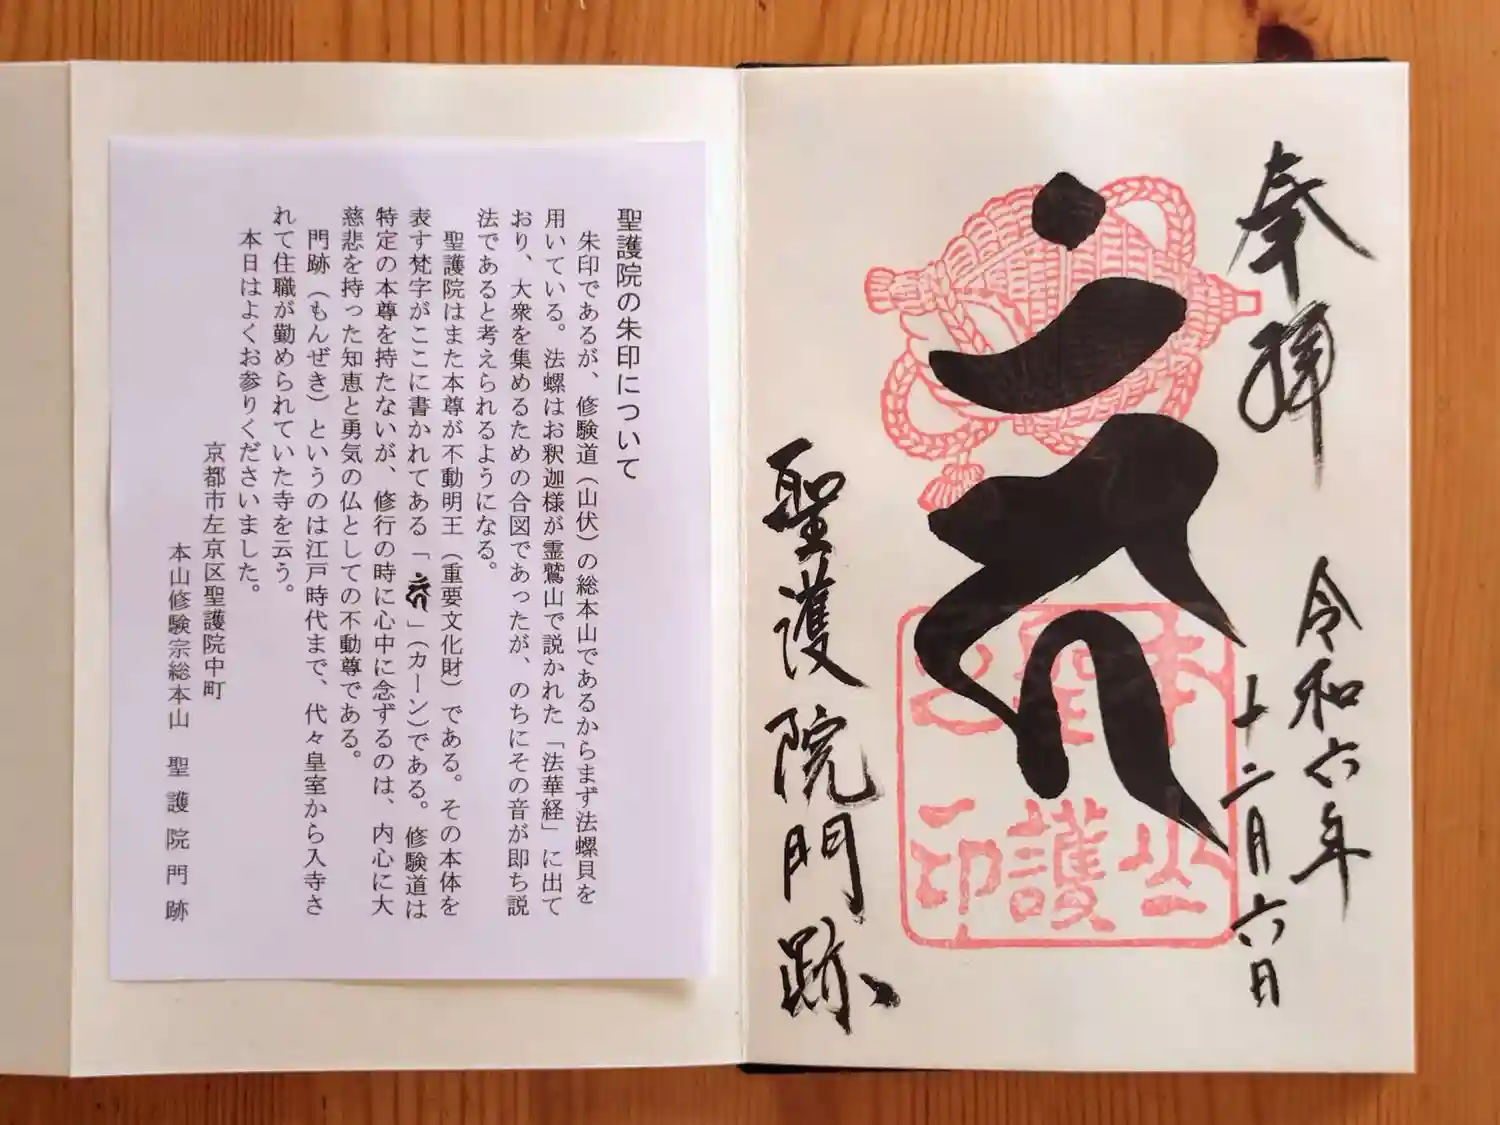 奉拝
令和六年
十二月六日
聖護院門跡
本山
聖護
之印
聖護院の朱印について
朱印であるが、修験道（山伏）の総本山であるからまず法螺貝を
用いている。法螺はお釈迦様が霊鷲山で説かれた「法華経」に出て
おり、大衆を集めるための合図であったが、のちにその音が即ち説
法であると考えられるようになる。
聖護院はまた本尊が不動明王（重要文化財）である。その本体を
表す梵字がここに書かれてある「 」（カーン）である。修験道は
特定の本尊を持たないが、修行の時に心中に念ずるのは、内心に大
慈悲を持った知恵と勇気の仏としての不動尊である。
門跡（もんぜき）というのは江戸時代まで、代々皇室から入寺さ
れて住職が勤められていた寺を云う。
本日はよくお参りくださいました。
京都市左京区聖護院中町
本山修験宗総本山 聖護院門跡